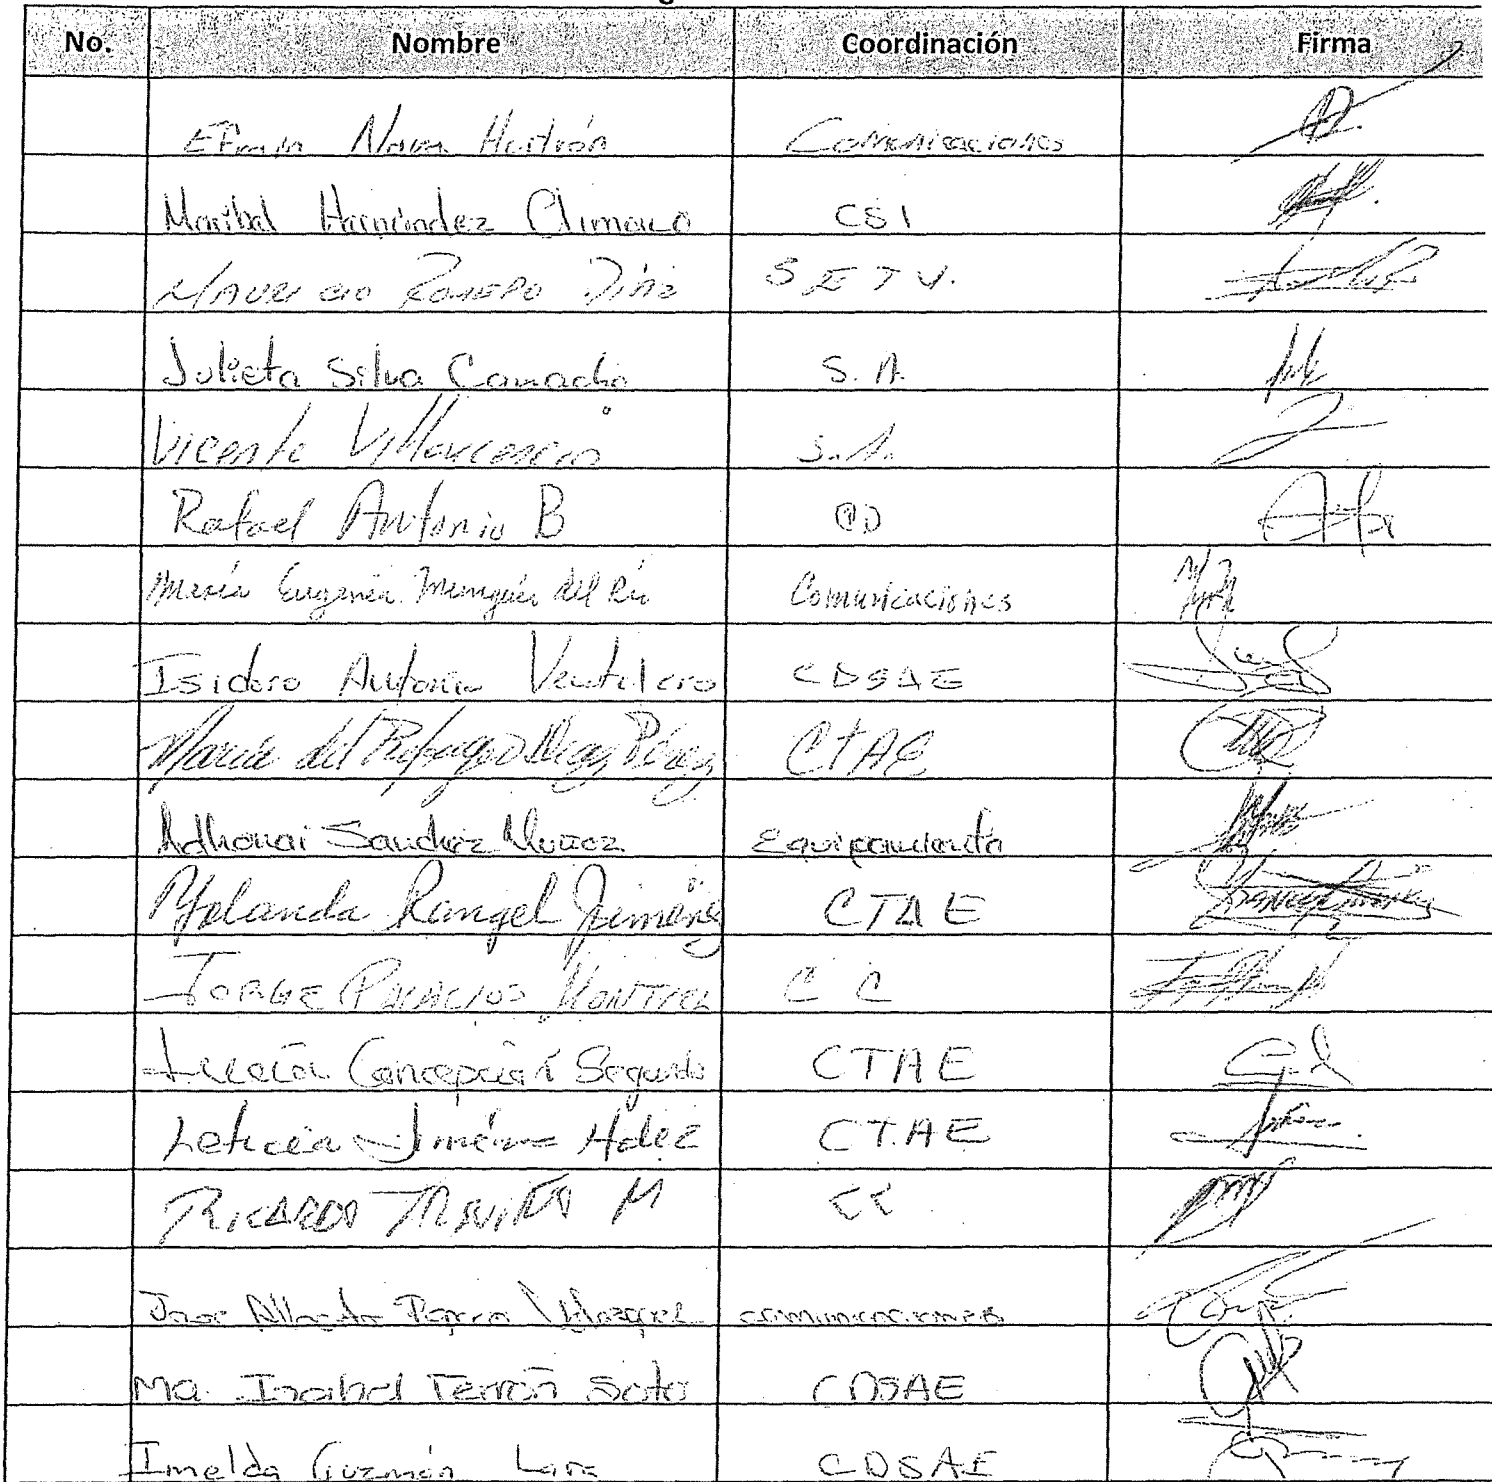 No. Nombre Coordinación Firma
Efraín Nava Comunicaciones
Maribel Hernández Climaco CSI
Mauricio Romero Díaz S E T V.
Julieta Silva Camacho S. A.
Vicente Villavicencio S. A.
Rafael Antonio B
María Eugenia Munguía del Río Comunicaciones
Isidoro Antonio Ventilero CDSAE
María del Refugio Díaz Pérez CTAE
Adhonai Sanchez Muñoz Equipamiento
Yolanda Rangel Jiménez CTAE
JORGE PALACIOS MONTIEL C C
Lucía Concepción Segundo CTAE
Leticia Jiménez Hdez CTAE
RICARDO M CC
Jose Alberto Parra Velazquez comunicaciones
Ma. Isabel Terrón Soto CDSAE
Imelda Guzmán Lara CDSAE